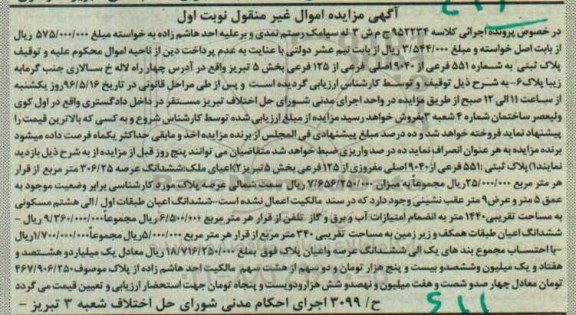 آگهی مزایده اموال غیر منقول نوبت اول
در خصوص پرونده اجرائی کلاسه ۹۵۲۲۳۴ ج م ش ۳ له سیامک رستم نمدی و برعلیه احد هاشم زاده به خواسته مبلغ ۵۷۵/۰۰۰/۰۰۰ ریال
از بابت اصل خواسته و مبلغ ۳/۵۴۴/۰۰۰ ریال از بابت نیم عشر دولتی با عنایت به عدم پرداخت دین از ناحیه اموال محکوم علیه و توقیف
پلاک ثبتی به شماره ۵۵۱ فرعی از ۹۰۴۰ اصلی فرعی از ۱۲۵ فرعی بخش ۵ تبریز واقع در آدرس چهار راه لاله خ سالاری جنب گرمابه
زیبا پلاک ۶- به شرح ذیل توقیف و توسط کارشناس ارزیابی گردیده است و پس از طی مراحل قانونی در تاریخ ۹۶/۵/۱۶ روز یکشنبه
از ساعت ۱۱ الی ۱۲ صبح از طریق مزایده در واحد اجرای مدنی شورای حل اختلاف تبریز مستقر در داخل دادگستری واقع در اول کوی
ولیعصر ساختمان شماره ۴ شعبه ۳ بفروش خواهد رسید مزایده از مبلغ ارزیابی شده توسط کارشناس شروع و به کسی که بالاترین قیمت را
پیشنهاد نماید فروخته خواهد شد و ده درصد مبلغ پیشنهادی فی المجلس از برنده مزایده اخذ و مابقی حداکثر یکماه فرصت داده میشود
برنده مزایده به هر عنوان انصراف نماید ده درصد واریزی ضبط خواهد شد متقاضیان می توانند پنج روز قبل از مزایده از به شرح ذیل بازدید
نمایند ۱) پلاک ثبتی: ۵۵۱ فرعی از ۹۰۴۰ اصلی مفروزی از ۱۲۵ فرعی بخش ۵ تبریز ۲) اعیای ملک ششدانگ عرصه ۳۰۶/۲۵ متر مربع از قرار
هر متر مربع ۲۵/۰۰۰/۰۰۰ ریال مجموعاً به میزان ۷/۶۵۶/۲۵۰/۰۰۰ ریال سمت شمالی عرصه پلاک مورد کارشناسی برابر وضعیت موجود به
عمق ۵ متر و عرض ۹ متر عقب نشینی وجود دارد که در سند مالکیت اعمال نشده است- ششدانگ اعیان طبقات اول الی هشتم مسکونی
به مساحت تقریبی ۱۴۴۰ متر به انضمام امتیازات آب و برق و گاز تلفن از قرار هر متر مربع ۶/۵۰۰/۰۰۰ ریال مجموعاً ۹/۳۶۰/۰۰۰/۰۰۰ ریال –
ششدانگ اعیان طبقات همکف و زیر زمین به مساحت تقریبی ۳۴۰ متر مربع از قرار هر متر مربع ۵/۰۰۰/۰۰۰ ریال مجموعاً ۱/۷۰۰/۰۰۰/۰۰۰ ریال
–با احتساب مجموع بند های یک الی ششدانگ عرصه واعیان پلاک فوق بمبلغ ۱۸/۷۱۶/۲۵۰/۰۰۰ ریال معادل یک میلیارد و هشتصد و
هفتاد و یک میلیون و ششصد و بیست و پنج هزار تومان و دو سهم از هشت سهم مالکیت احد هاشم زاده از پلاک موصوف ۴۶۷/۹۰۶/۲۵۰
تومان معادل چهار صد و شصت و هفت میلیون و نهصد و شش هزار و دویست و پنجاه تومان جهت استحضار ارزیابی و تعیین قیمت می گردد
ح/ ۳۰۹۹ اجرای احکام مدنی شورای حل اختلاف شعبه ۳ تبریز –